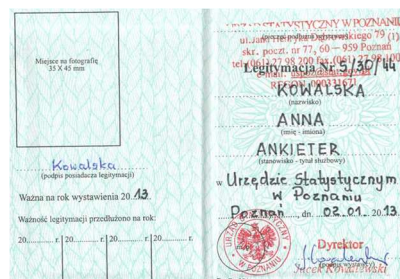 Miejsce na fotografię
35 X 45 mm
Kowalska
(podpis posiadacza legitymacji)
Ważna na rok wystawienia 2013
Ważność legitymacji przedłużono na rok:
20 r. 20 r. 20 r. 20 r.
URZĄD STATYSTYCZNY W POZNANIU
ul. Jana Henryka Dąbrowskiego 79 (1)
skr. poczt. nr 77, 60 – 959 Poznań
tel. (061) 27 98 200 fax (061) 27 98 100
REGON 000331671
Legitymacja Nr 5/30/44
KOWALSKA
(nazwisko)
ANNA
(imię - imiona)
ANKIETER
(stanowisko - tytuł służbowy)
w Urzędzie Statystycznym
w Poznaniu
Poznań, dn. 02.01.2013
URZĄD STATYSTYCZNY W POZNANIU
Dyrektor
(podpis wystawcy)
Jacek Kowalewski